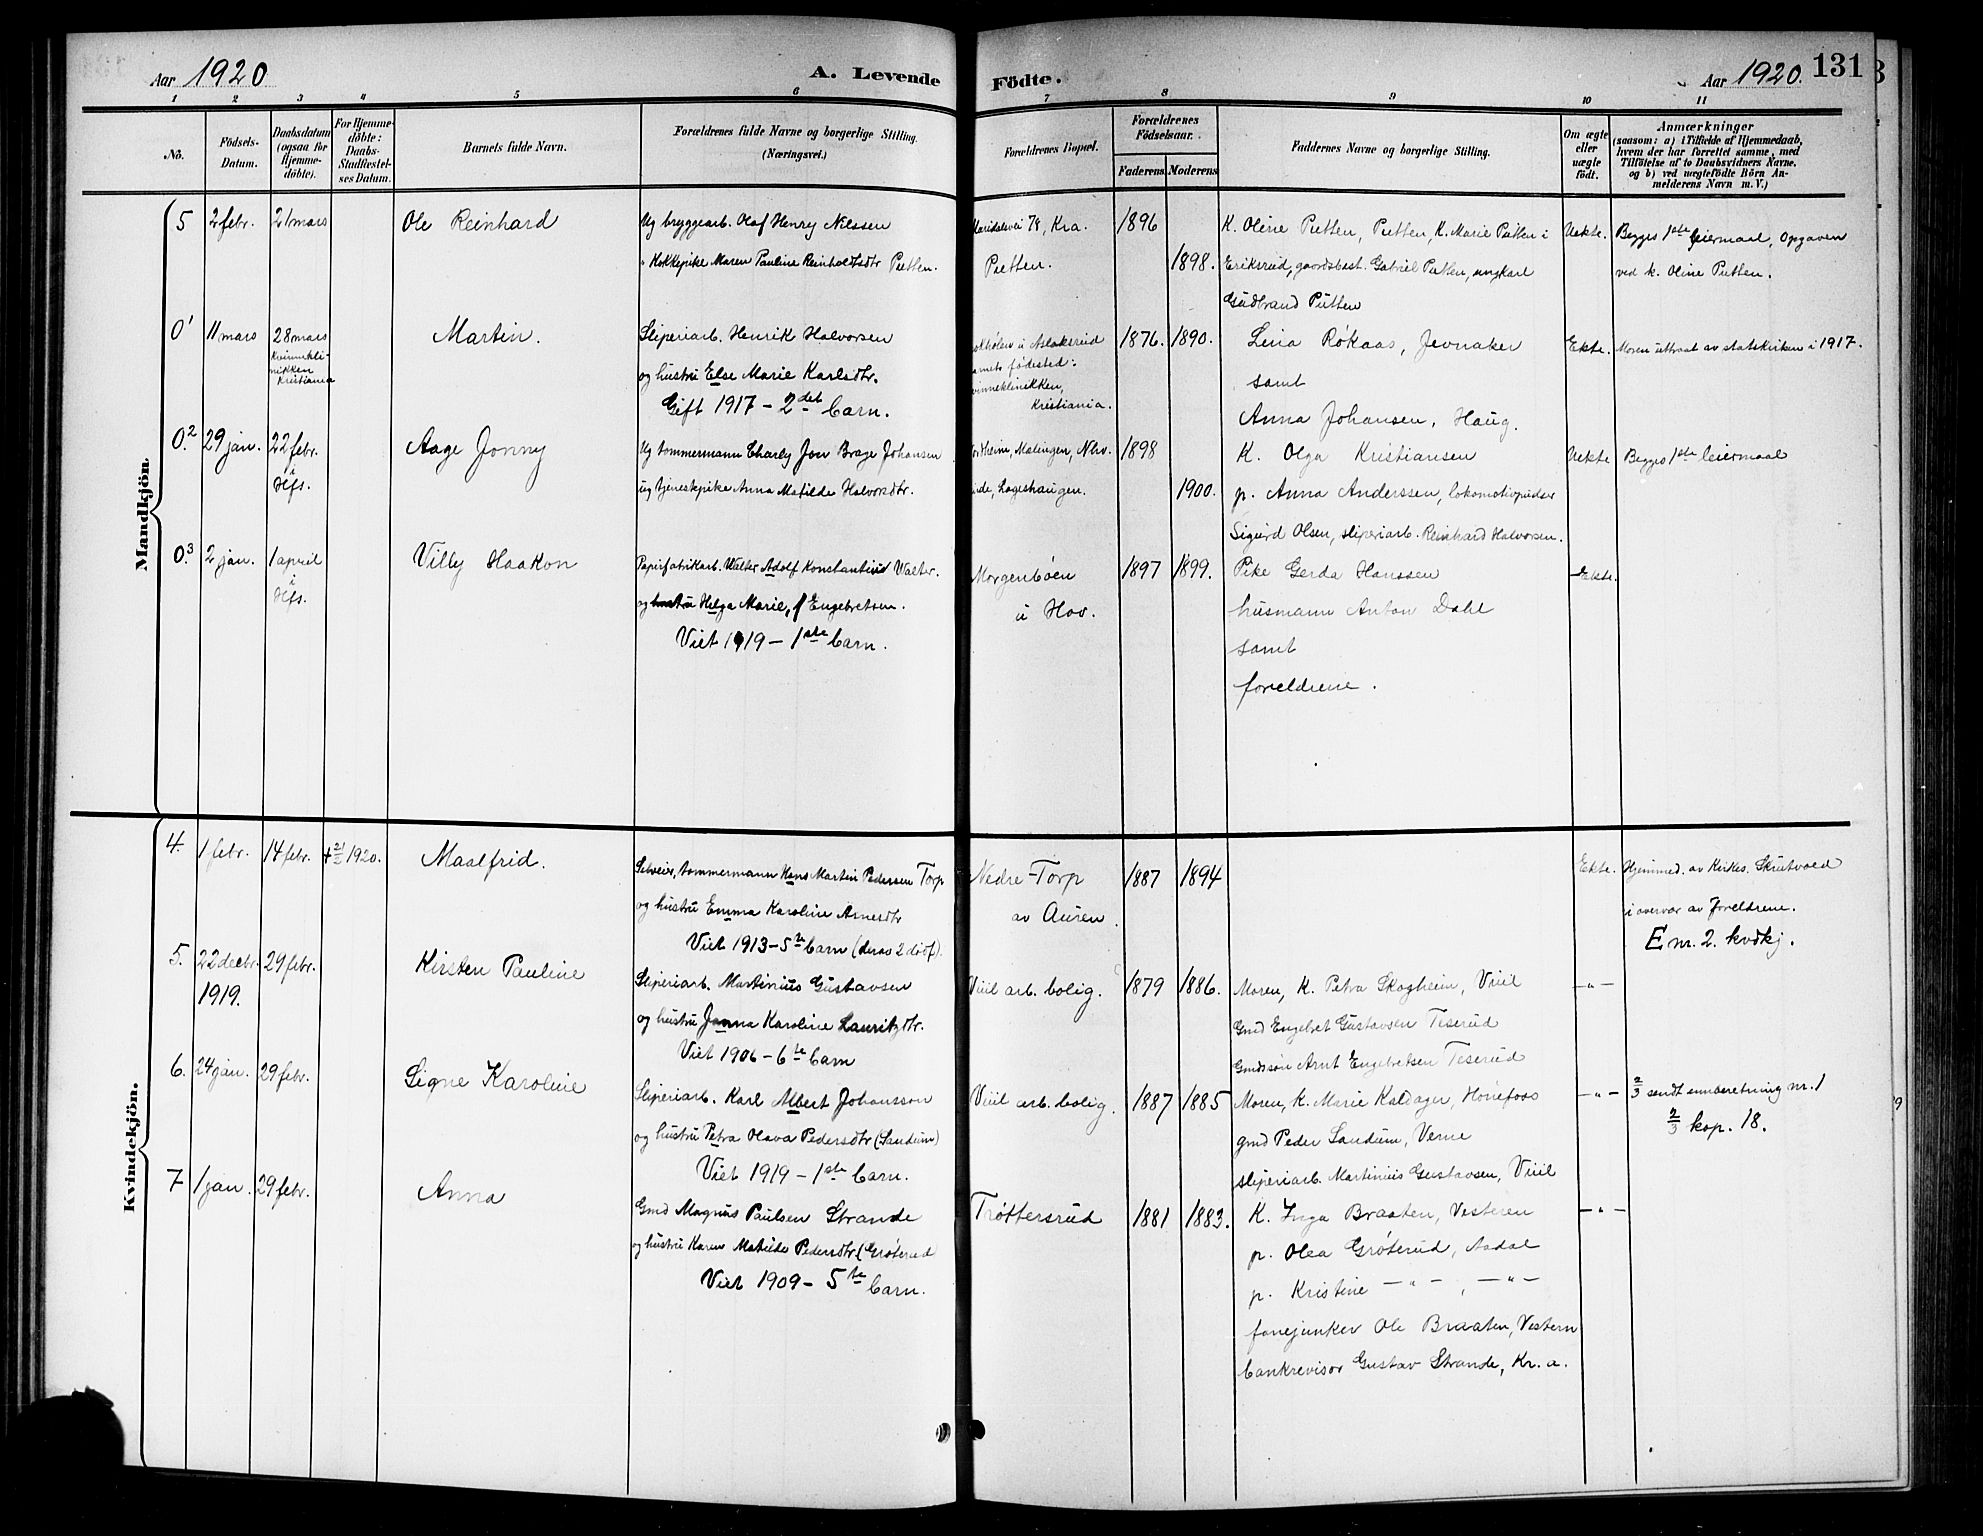 Aar 1920
A. Levende
Födte.
Aar 1920.
131
1 2 3 4 5 6 7 8 9 10 11
No.
Födsels-
Datum.
Daabsdatum
(ogsaa for
Hjemme-
döbte).
For Hjemme-
döbte:
Daabs-
Stadfæstel-
ses Datum.
Barnets fulde Navn.
Forældrenes fulde Navne og borgerlige Stilling.
(Næringsvei.)
Forældrenes Bopæl.
Forældrenes
Födselsaar.
Faderens
Moderens
Faddernes Navne og borgerlige Stilling.
Om ægte
eller
uægte
født.
Anmærkninger
(saasom: a) i Tilfælde af Hjemmedaab,
hvem der har forrettet samme, med
Tilföielse af to Daabsvidners Navne,
og b) ved uægtefödte Börn An-
melderens Navn m. V.)
Mandkjön.
5
2 febr.
21 mars
Ole Reinhard
Ug bryggearb. Olaf Henry Nilssen
" Kokkepike Maren Pauline Reinholdtsdtr Putten.
Maridalsvei 78, Kra.
Putten.
1896
1898.
K. Oline Putten, Putten, K. Marie Putten i
Eriksrud, gaardsbest. Gabriel Putten, ungkarl
Gudbrand Putten
Uekte.
Begges 1ste leiermaal, Opgaven
ved k. Oline Putten.
0¹
11 mars
28 mars
Kvinnekli-
nikken
Kristiania
Martin.
Sliperiarb. Henrik Halvorsen
og hustru Else Marie Karlsdtr.
Gift 1917 - 2det barn.
i Aslaksrud
fødested:
vinneklinikken,
Kristiania.
1876. 1890.
Lina Røkaas, Jevnaker
samt
Anna Johansen, Haug.
Ekte.
Moren uttraat av statskirken i 1917.
0.²
29 jan.
22 febr.
i
Hfs.
Aage Jonny
Ug tømmermann Charly Jon Brage Johansen
ug tjenestepike Anna Matilde Halvorsdtr.
Malingen, Nhv.
Lageshaugen.
1898
1900.
K. Olga Kristiansen
p. Anna Anderssen, lokomotivpudser
Sigurd Olsen, sliperiarb. Reinhard Halvorsen.
Uekte
Begges 1ste leiermaal
0.³
2 jan.
1 april
i
Hfs.
Villy Haakon
Papirfabrikarb. Walter Adolf Konstantius Walter.
og hustru Helga Marie, f Engebretsen.
Viet 1919 - 1ste barn.
Morgenbøen
i Hov.
1897 1899.
Pike Gerda Hanssen
husmann Anton Dahl
samt
foreldrene.
Ekte.
Kvindekjön.
4.
1 febr.
14 febr.
+ 21/2 1920.
Maalfrid.
Selveier, tømmermann Hans Martin Pedersen Torp
og hustru Emma Karoline Arnesdtr
Viet 1913 - 5te barn (derav 2 dødf).
Nedre-Torp
av Auren.
1887 1894
Ekte.
Hjemmed. av Kirkes. Skutvold
i overvær av foreldrene.
E nr. 2. kvdkj.
5.
22 decbr.
1919.
29 febr.
Kirsten Pauline
Sliperiarb. Martinius Gustavsen
og hustru Janna Karoline Lauritzdtr.
Viet 1906 - 6te barn
Viul arb. bolig.
1879 1886.
Moren, K. Petra Skogheim, Viul
Gmd Engebret Gustavsen Teserud
Gmdssøn Arnt Engebretsen Teserud
- " -
6.
24 jan.
29 febr.
Signe Karoline
Sliperiarb. Karl Albert Johansson
og hustru Petra Olava Pedersdtr (Sandum)
Viet 1919 - 1ste barn.
Viul arb. bolig.
1887 1885
Moren, K. Marie Kaldager, Hønefoss
gmd Peder Sandum, Verne
sliperiarb. Martinius Gustavsen, Viul
- " -
2/3 sendt innberetning nr. 1
2/3 kop. 18.
7
1 jan.
29 febr.
Anna
Gmd Magnus Paulsen Strande
og hustru Karen Matilde Pedersdtr (Grøterud
Viet 1909 - 5te barn.
Trøttersrud
1881 1883.
K. Inga Braaten, Vesteren
p. Olea Grøterud, Aadal
p. Kristine - " - , - " -
fanejunker Ole Braaten, Vestern
bankrevisor Gustav Strande, Kr. a.
- " -